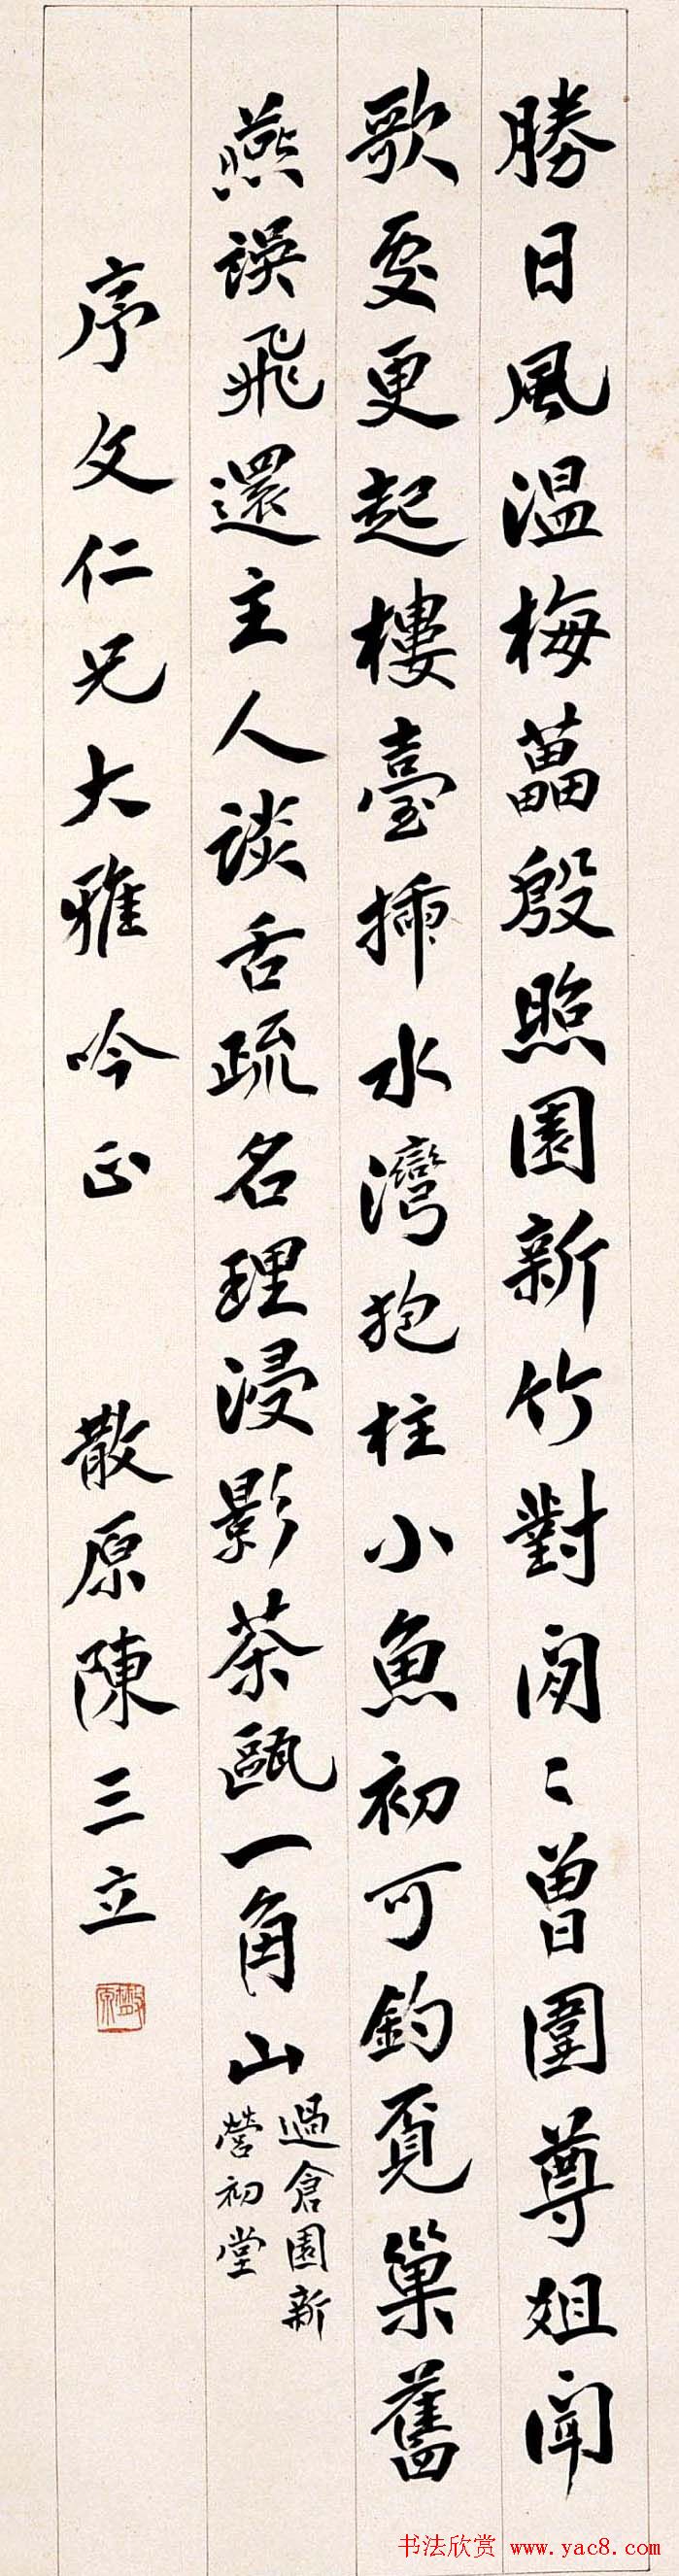 勝日風温梅藟殷照園新竹對閑〻曾圍尊俎聞
歌更起樓臺揷水灣抱柱小魚初可釣覓巢舊
燕誤飛還主人談舌疏名理浸影茶甌一角山
過倉園新
營初堂
序文仁兄大雅吟正 散原陳三立
书法欣赏 www.yac8.com